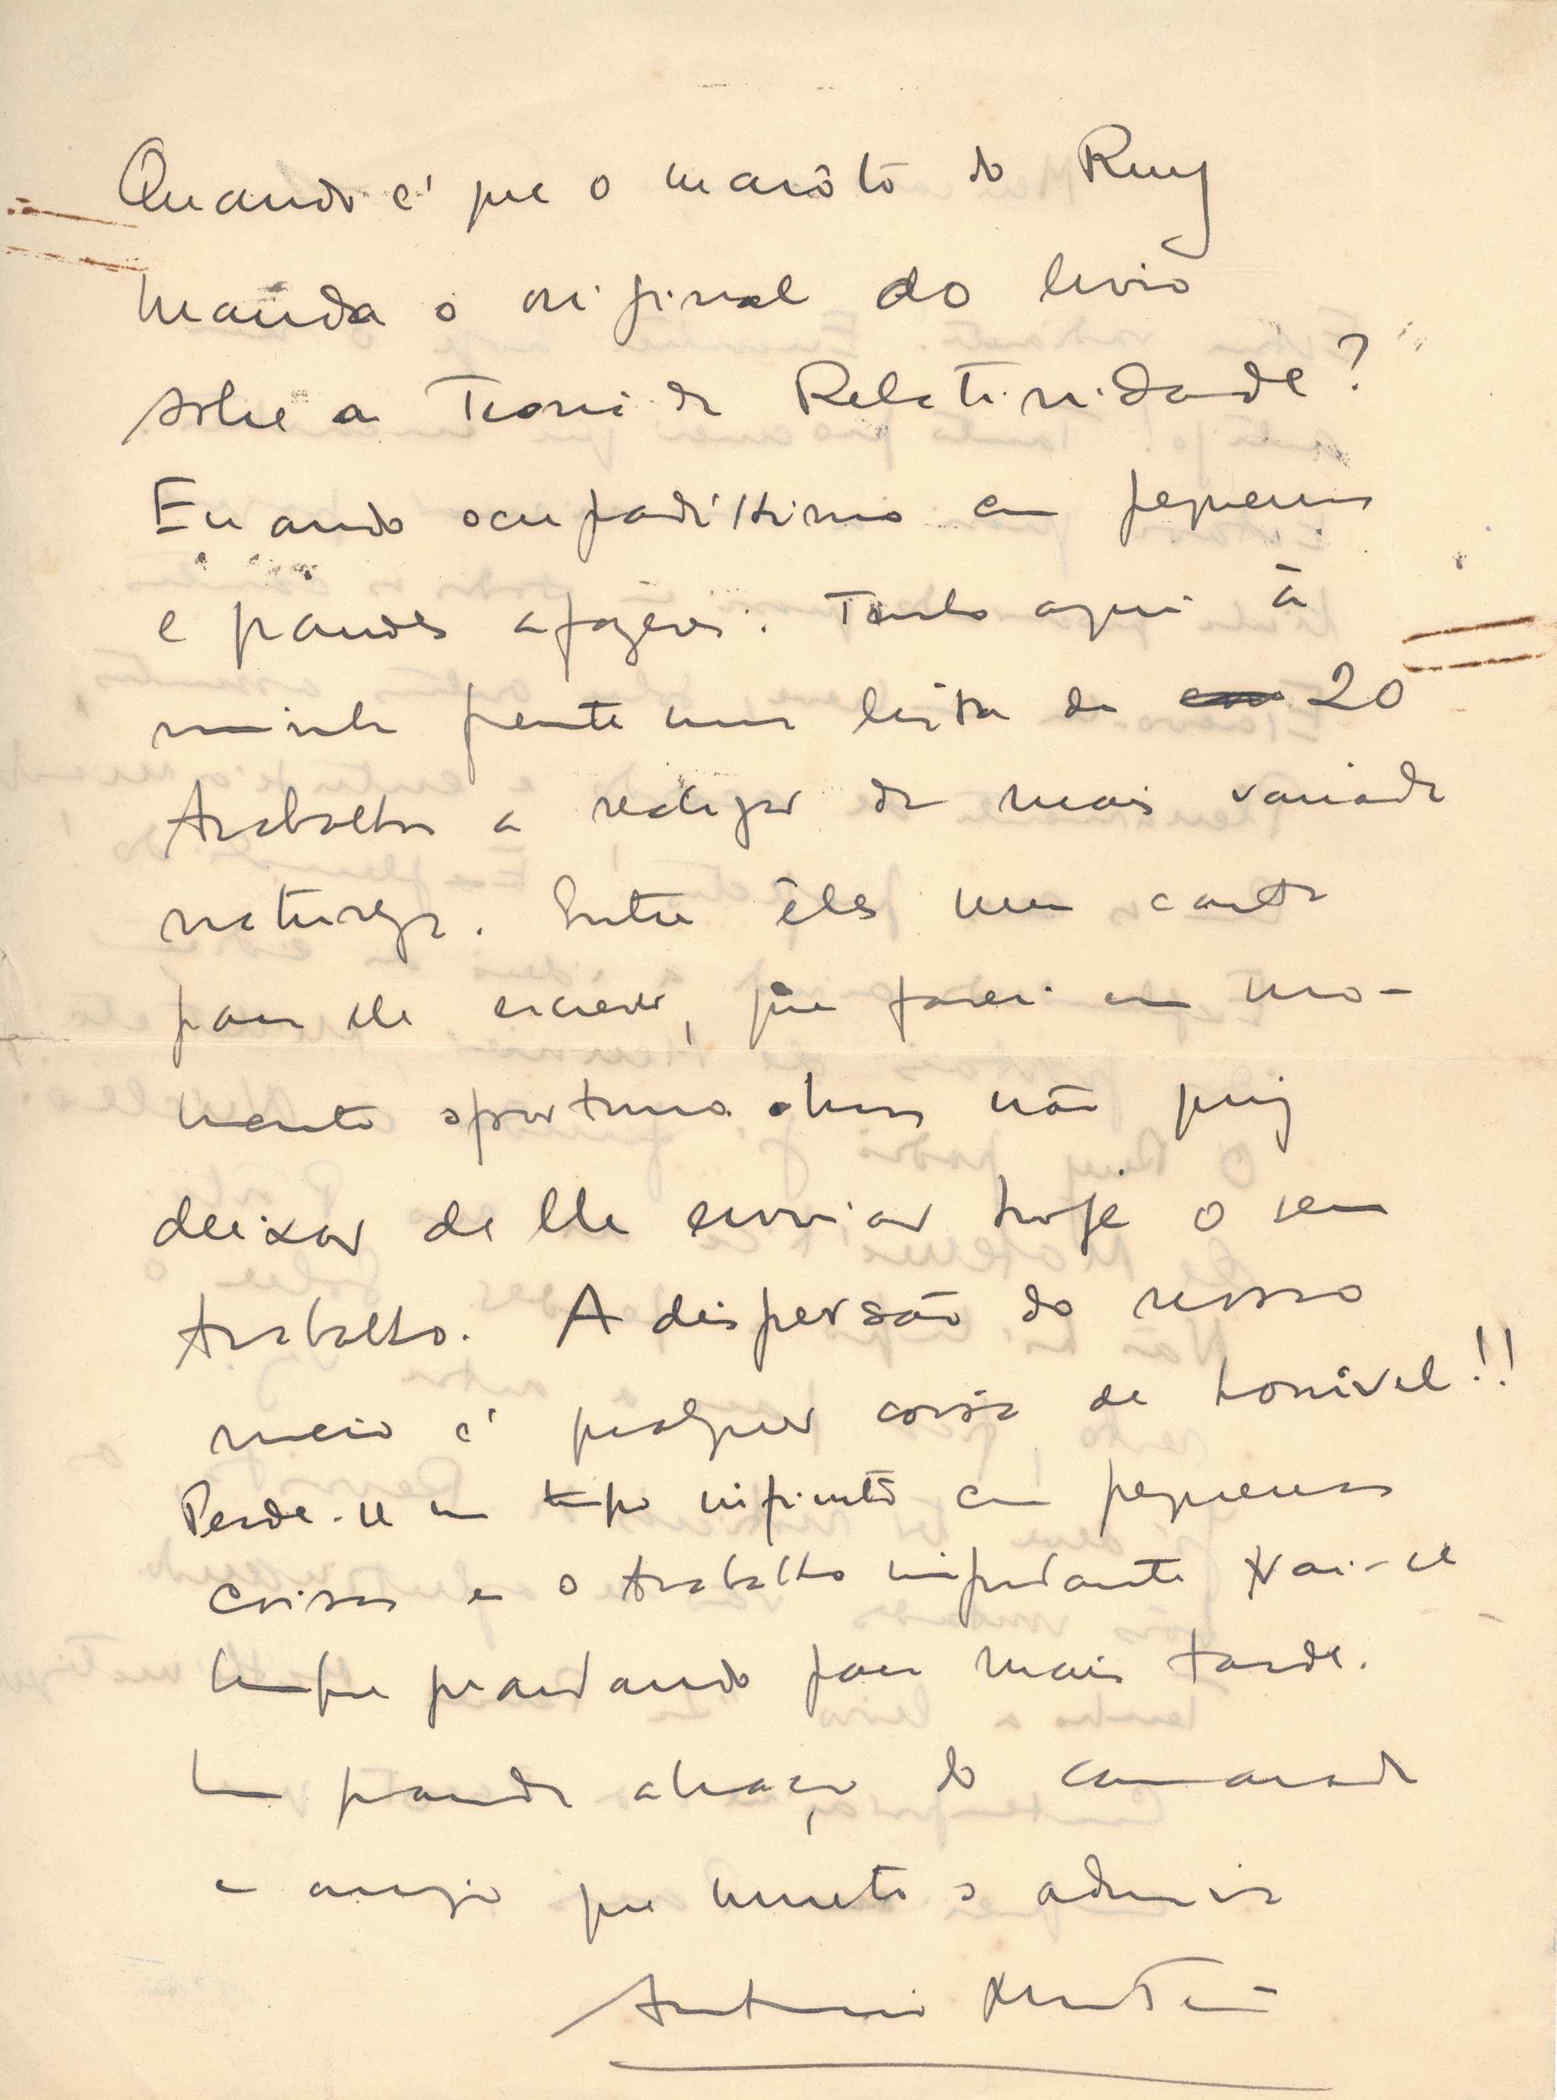 Quando é que o marôto do Ruy
manda o original do livro
sobre a Teoria da Relatividade?
Eu ando ocupadíssimo em pequenos
e grandes afazeres. Tenho aqui à
minha frente uma lista de 20
trabalhos a realizar da mais variada
natureza. Entre êles uma carta
para lhe escrever, que farei em mo-
mento oportuno mas não quiz
deixar de lhe enviar hoje o seu
trabalho. A dispersão do nosso
meio é qualquer coisa de horrível!!
Perde-se um tempo infinito em pequenas
coisas e o trabalho importante vai-se
sempre guardando para mais tarde.
Um grande abraço do camarada
e amigo que muito o admira
Antonio Monteiro